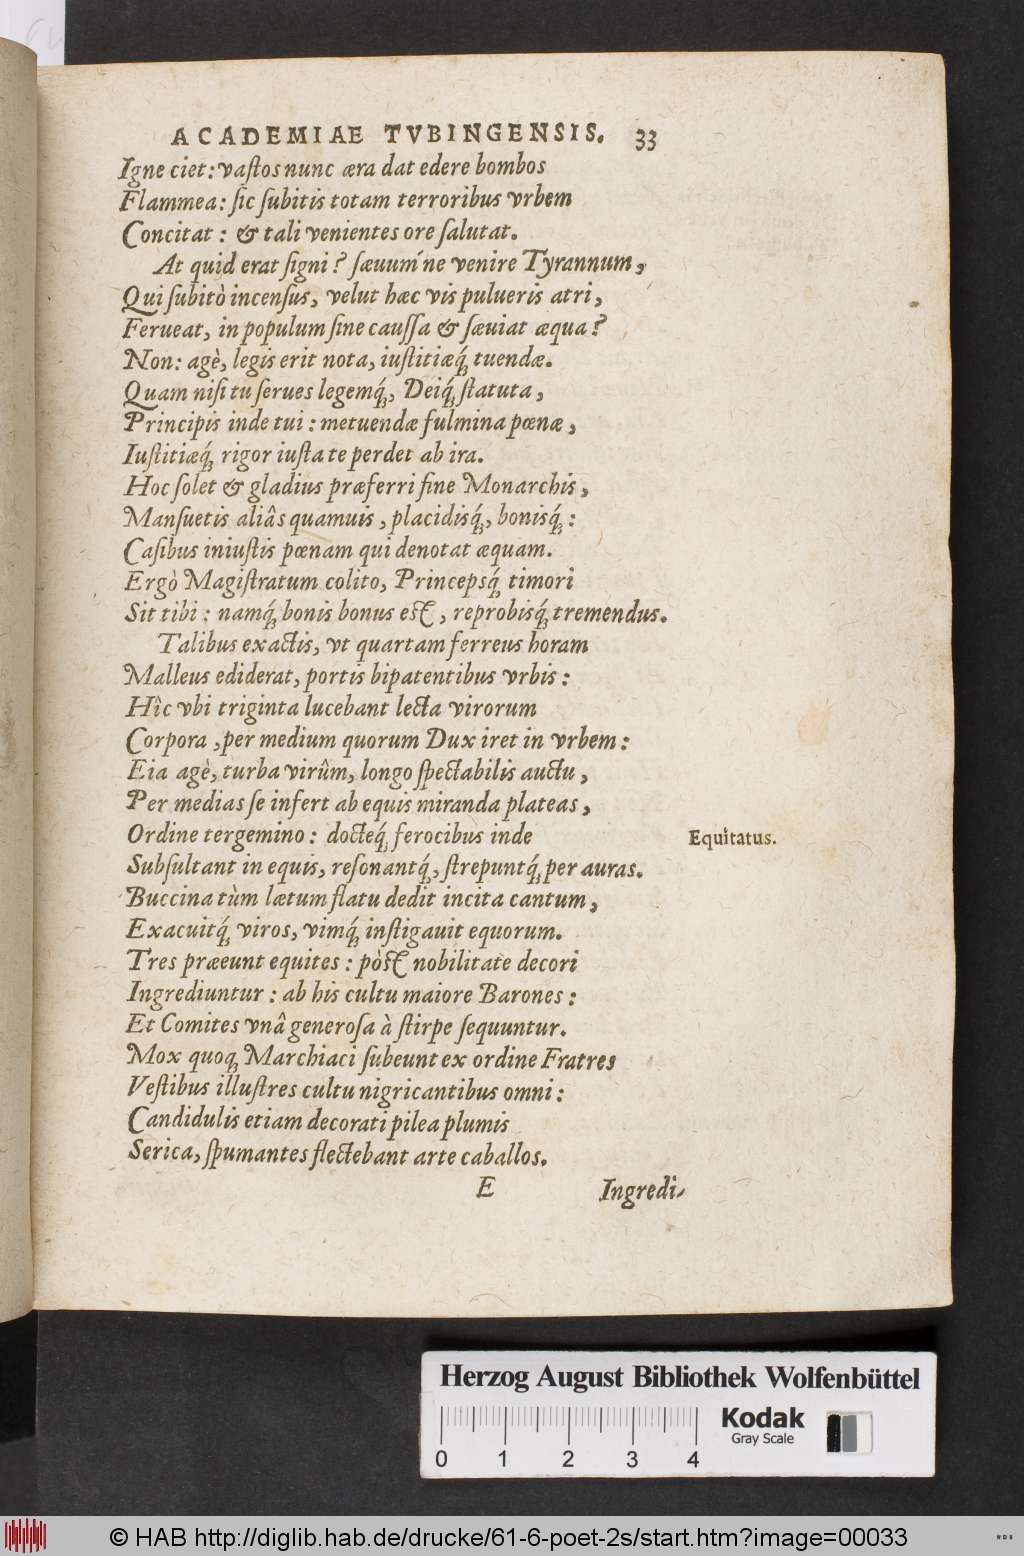 ACADEMIAE TVBINGENSIS. 33
Igne ciet: vaſtos nunc æra dat edere bombos
Flammea: ſic ſubitis totam terroribus vrbem
Concitat: & tali venientes ore ſalutat.
At quid erat ſigni? ſævum'ne venire Tyrannum,
Qui ſubitò incenſus, velut hæc vis pulueris atri,
Ferueat, in populum ſine cauſſa & ſæuiat æqua?
Non: agè, legis erit nota, iuſtitiæq́ꝫ tuendæ.
Quam niſi tu ſerues legemq́ꝫ, Deiq́ꝫ ſtatuta,
Principis inde tui: metuendæ fulmina pœnæ,
Iuſtitiæq́ꝫ rigor iuſta te perdet ab ira.
Hoc ſolet & gladius præferri ſine Monarchis,
Manſuetis aliâs quamuis, placidisq́ꝫ, bonisq́ꝫ:
Caſibus iniuſtis pœnam qui denotat æquam.
Ergò Magiſtratum colito, Princepsq́ꝫ timori
Sit tibi: namq́ꝫ bonis bonus eſt, reprobisq́ꝫ tremendus.
Talibus exactis, vt quartam ferreus horam
Malleus ediderat, portis bipatentibus vrbis:
Hîc vbi triginta lucebant lecta virorum
Corpora, per medium quorum Dux iret in vrbem:
Eia agè, turba virûm, longo ſpectabilis auctu,
Per medias ſe infert ab equis miranda plateas,
Ordine tergemino: docteq́ꝫ ferocibus inde
Equitatus.
Subſultant in equis, reſonantq́ꝫ, ſtrepuntq́ꝫ per auras.
Buccina tùm lætum flatu dedit incita cantum,
Exacuitq́ꝫ viros, vimq́ꝫ inſtigauit equorum.
Tres præeunt equites: pòſt nobilitate decori
Ingrediuntur: ab his cultu maiore Barones:
Et Comites vnâ generoſa à ſtirpe ſequuntur.
Mox quoqꝫ Marchiaci ſubeunt ex ordine Fratres
Veſtibus illuſtres cultu nigricantibus omni:
Candidulis etiam decorati pilea plumis
Serica, ſpumantes flectebant arte caballos.
E Ingredi-
Herzog August Bibliothek Wolfenbüttel
Kodak
Gray Scale
0 1 2 3 4
© HAB http://diglib.hab.de/drucke/61-6-poet-2s/start.htm?image=00033